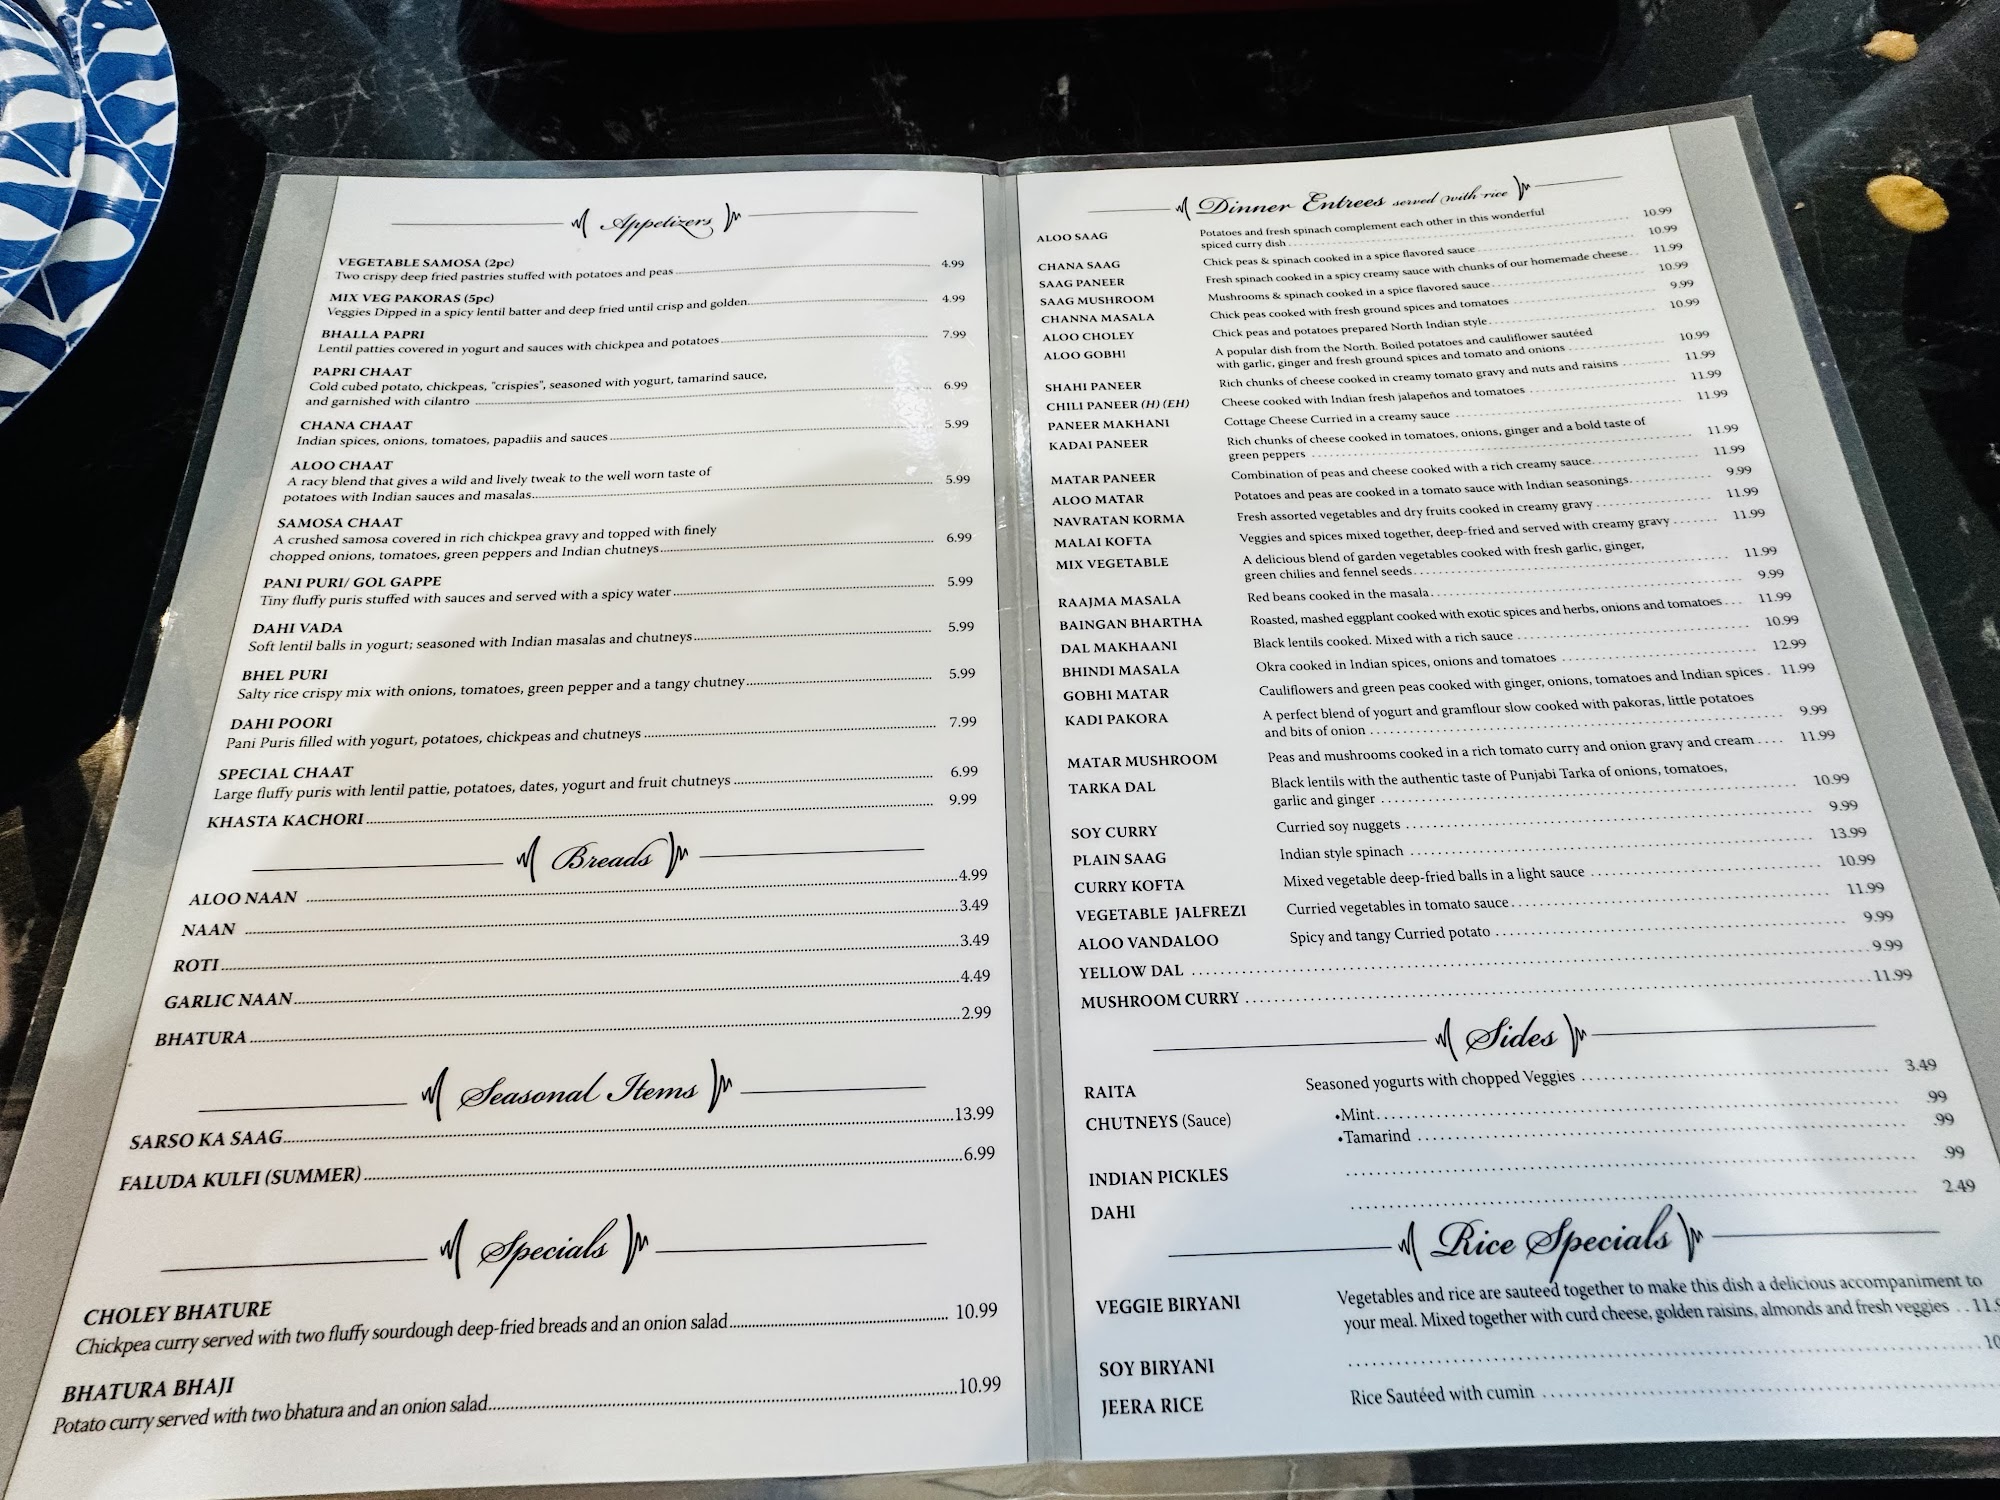 Appetizers
VEGETABLE SAMOSA (2pc)
Two crispy deep fried pastries stuffed with potatoes and peas 4.99
MIX VEG PAKORAS (5pc)
Veggies Dipped in a spicy lentil batter and deep fried until crisp and golden 4.99
BHALLA PAPRI
Lentil patties covered in yogurt and sauces with chickpea and potatoes 7.99
PAPRI CHAAT
Cold cubed potato, chickpeas, "crispies", seasoned with yogurt, tamarind sauce,
and garnished with cilantro 6.99
CHANA CHAAT
Indian spices, onions, tomatoes, papadiis and sauces 5.99
ALOO CHAAT
A racy blend that gives a wild and lively tweak to the well worn taste of
potatoes with Indian sauces and masalas 5.99
SAMOSA CHAAT
A crushed samosa covered in rich chickpea gravy and topped with finely
chopped onions, tomatoes, green peppers and Indian chutneys 6.99
PANI PURI/ GOL GAPPE
Tiny fluffy puris stuffed with sauces and served with a spicy water 5.99
DAHI VADA
Soft lentil balls in yogurt; seasoned with Indian masalas and chutneys 5.99
BHEL PURI
Salty rice crispy mix with onions, tomatoes, green pepper and a tangy chutney 5.99
DAHI POORI
Pani Puris filled with yogurt, potatoes, chickpeas and chutneys 7.99
SPECIAL CHAAT
Large fluffy puris with lentil pattie, potatoes, dates, yogurt and fruit chutneys 6.99
KHASTA KACHORI 9.99
Breads
ALOO NAAN 4.99
NAAN 3.49
ROTI 3.49
GARLIC NAAN 4.49
BHATURA 2.99
Seasonal Items
SARSO KA SAAG 13.99
FALUDA KULFI (SUMMER) 6.99
Specials
CHOLEY BHATURE
Chickpea curry served with two fluffy sourdough deep-fried breads and an onion salad 10.99
BHATURA BHAJI
Potato curry served with two bhatura and an onion salad 10.99
Dinner Entrees served with rice
ALOO SAAG Potatoes and fresh spinach complement each other in this wonderful
spiced curry dish 10.99
CHANA SAAG Chick peas & spinach cooked in a spice flavored sauce 10.99
SAAG PANEER Fresh spinach cooked in a spicy creamy sauce with chunks of our homemade cheese 11.99
SAAG MUSHROOM Mushrooms & spinach cooked in a spice flavored sauce 10.99
CHANNA MASALA Chick peas cooked with fresh ground spices and tomatoes 9.99
ALOO CHOLEY Chick peas and potatoes prepared North Indian style 10.99
ALOO GOBHI A popular dish from the North. Boiled potatoes and cauliflower sautéed
with garlic, ginger and fresh ground spices and tomato and onions 10.99
SHAHI PANEER Rich chunks of cheese cooked in creamy tomato gravy and nuts and raisins 11.99
CHILI PANEER (H) (EH) Cheese cooked with Indian fresh jalapeños and tomatoes 11.99
PANEER MAKHANI Cottage Cheese Curried in a creamy sauce 11.99
KADAI PANEER Rich chunks of cheese cooked in tomatoes, onions, ginger and a bold taste of
green peppers 11.99
MATAR PANEER Combination of peas and cheese cooked with a rich creamy sauce 11.99
ALOO MATAR Potatoes and peas are cooked in a tomato sauce with Indian seasonings 9.99
NAVRATAN KORMA Fresh assorted vegetables and dry fruits cooked in creamy gravy 11.99
MALAI KOFTA Veggies and spices mixed together, deep-fried and served with creamy gravy 11.99
MIX VEGETABLE A delicious blend of garden vegetables cooked with fresh garlic, ginger,
green chilies and fennel seeds 11.99
RAAJMA MASALA Red beans cooked in the masala 9.99
BAINGAN BHARTHA Roasted, mashed eggplant cooked with exotic spices and herbs, onions and tomatoes 11.99
DAL MAKHAANI Black lentils cooked. Mixed with a rich sauce 10.99
BHINDI MASALA Okra cooked in Indian spices, onions and tomatoes 12.99
GOBHI MATAR Cauliflowers and green peas cooked with ginger, onions, tomatoes and Indian spices 11.99
KADI PAKORA A perfect blend of yogurt and gramflour slow cooked with pakoras, little potatoes
and bits of onion 9.99
MATAR MUSHROOM Peas and mushrooms cooked in a rich tomato curry and onion gravy and cream 11.99
TARKA DAL Black lentils with the authentic taste of Punjabi Tarka of onions, tomatoes,
garlic and ginger 10.99
SOY CURRY Curried soy nuggets 9.99
PLAIN SAAG Indian style spinach 13.99
CURRY KOFTA Mixed vegetable deep-fried balls in a light sauce 10.99
VEGETABLE JALFREZI Curried vegetables in tomato sauce 11.99
ALOO VANDALOO Spicy and tangy Curried potato 9.99
YELLOW DAL 9.99
MUSHROOM CURRY 11.99
Sides
RAITA Seasoned yogurts with chopped Veggies 3.49
CHUTNEYS (Sauce) •Mint .99
•Tamarind .99
INDIAN PICKLES .99
DAHI 2.49
Rice Specials
VEGGIE BIRYANI Vegetables and rice are sauteed together to make this dish a delicious accompaniment to
your meal. Mixed together with curd cheese, golden raisins, almonds and fresh veggies
SOY BIRYANI
JEERA RICE Rice Sautéed with cumin